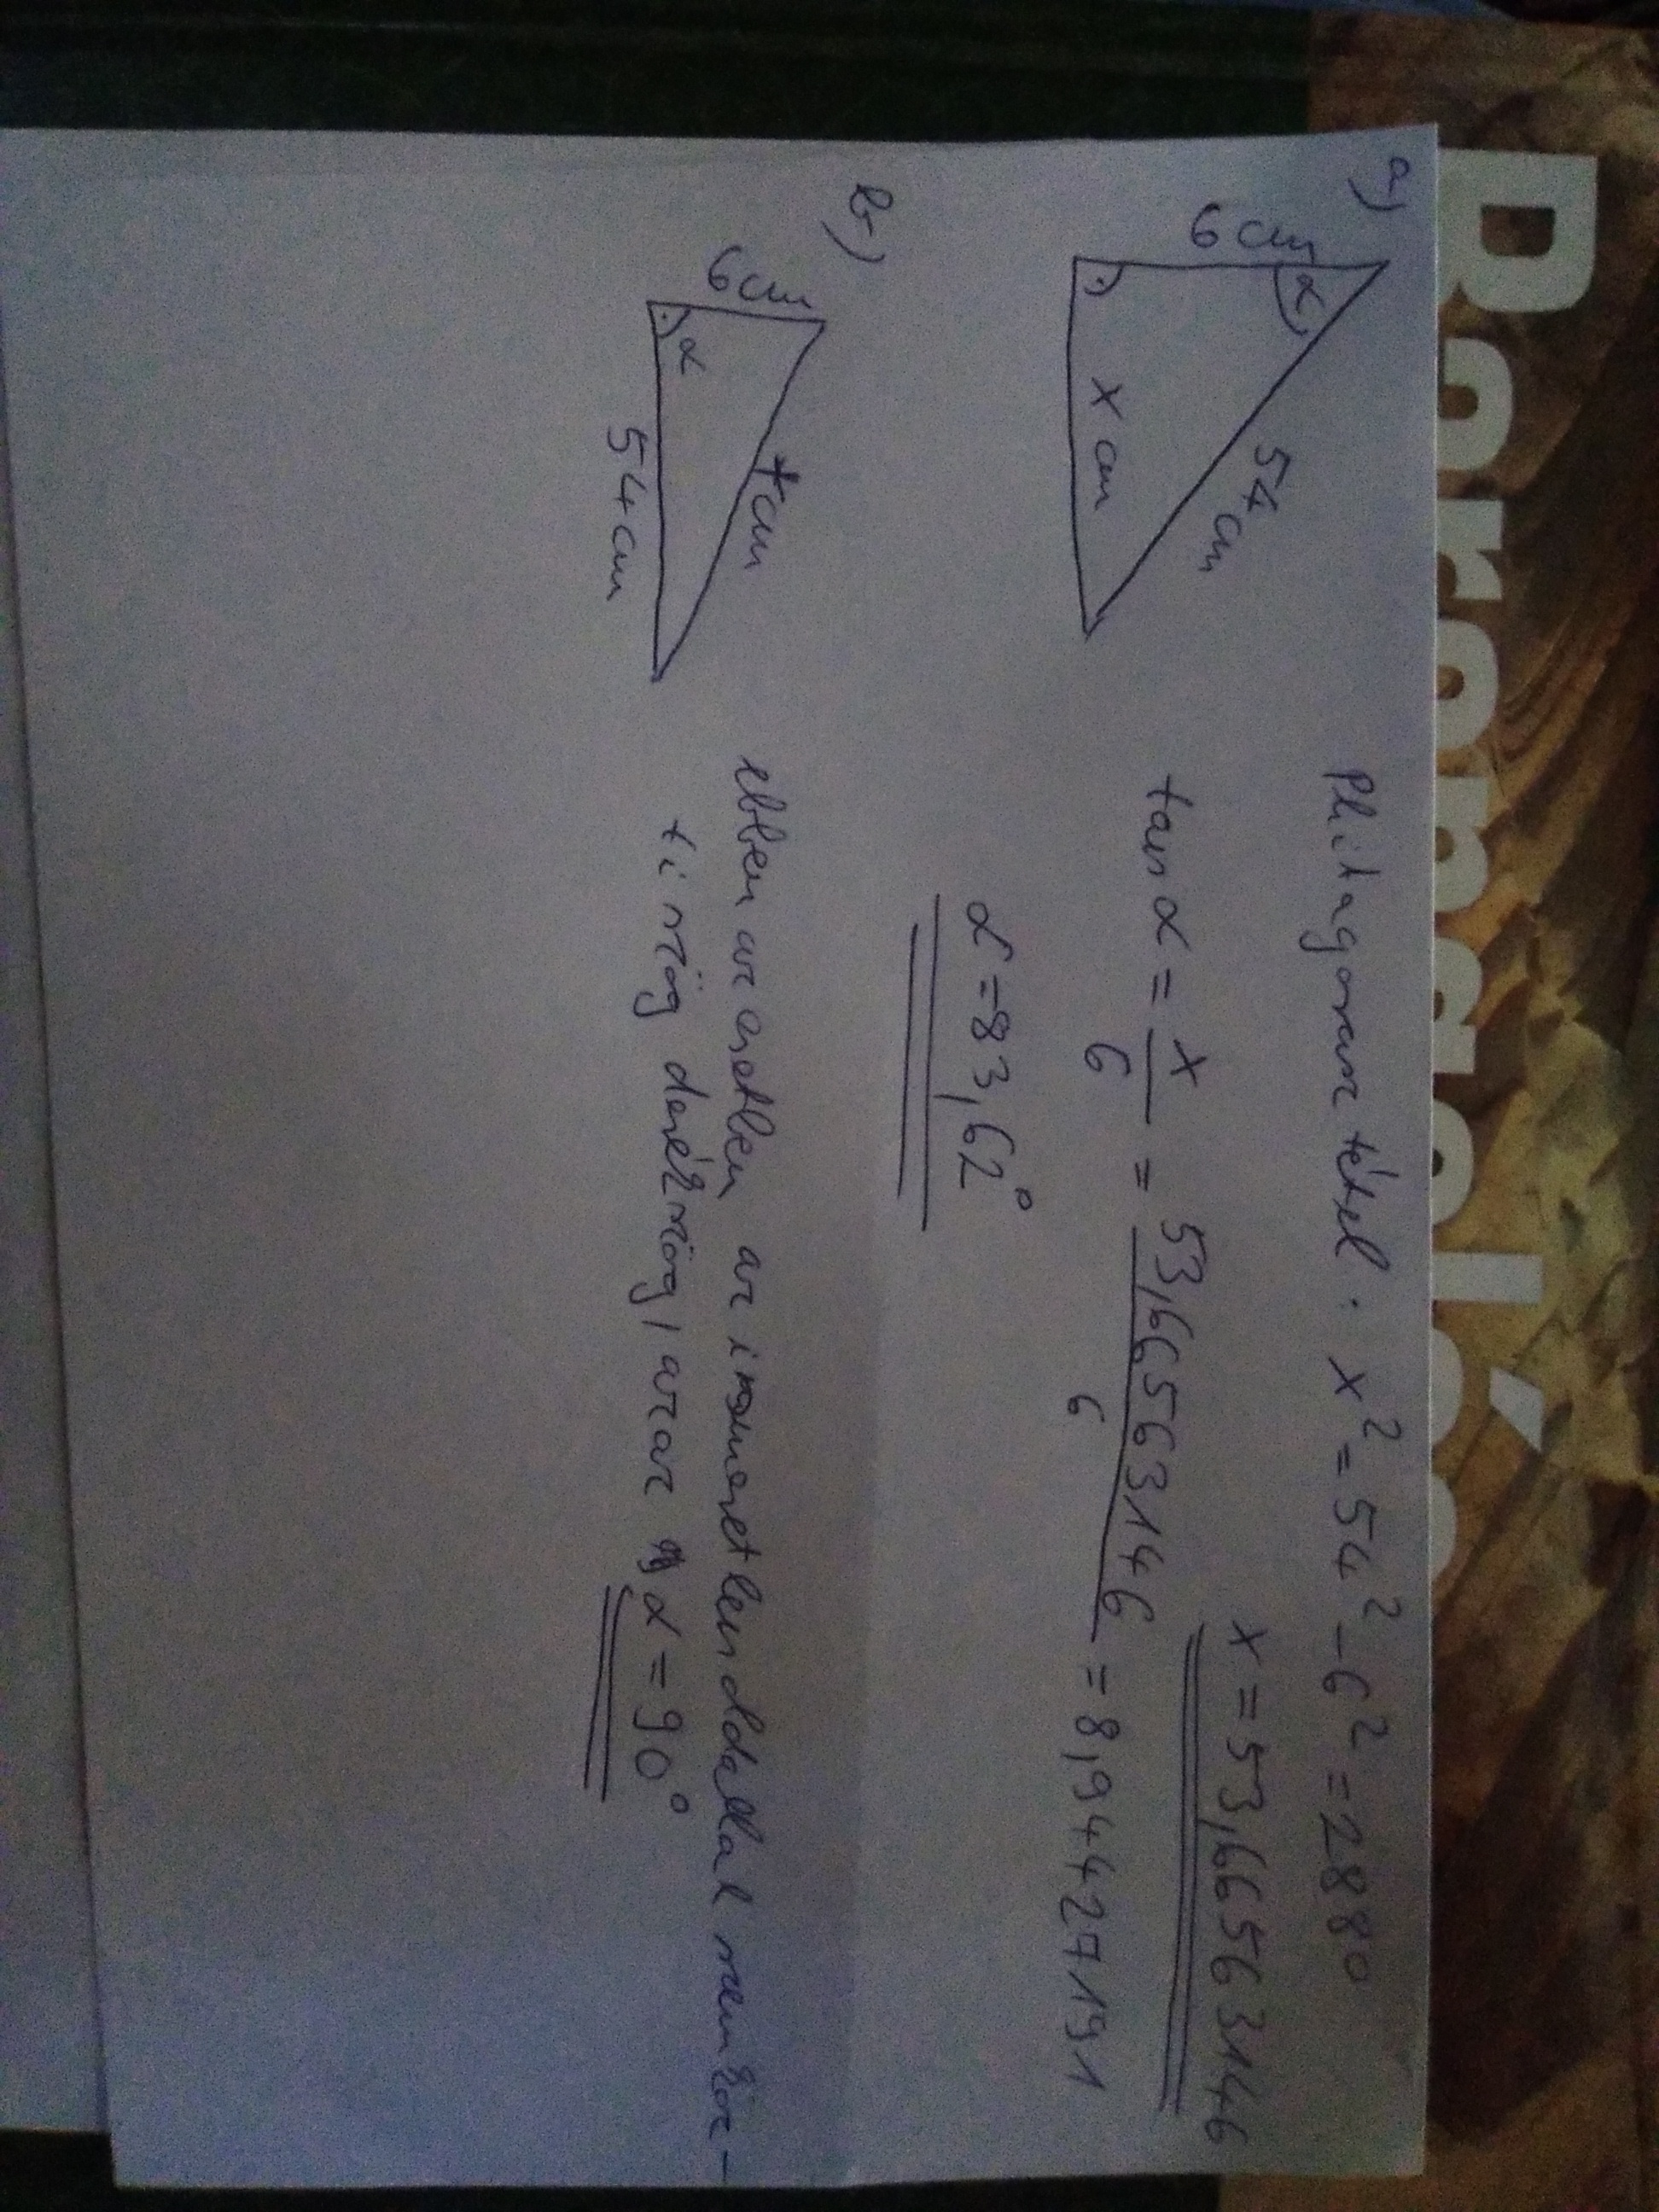 a)
6 cm
α
54 cm
x cm
Phitagorasz tétel: x² = 54² - 6² = 2880
x = 53,66563146
tan α = x/6 = 53,66563146/6 = 8,94427191
α = 83,62°
b)
6 cm
α
x cm
54 cm
ebben az esetben az ismeretlen oldallal szemköz-
ti szög derékszög, azaz α = 90°